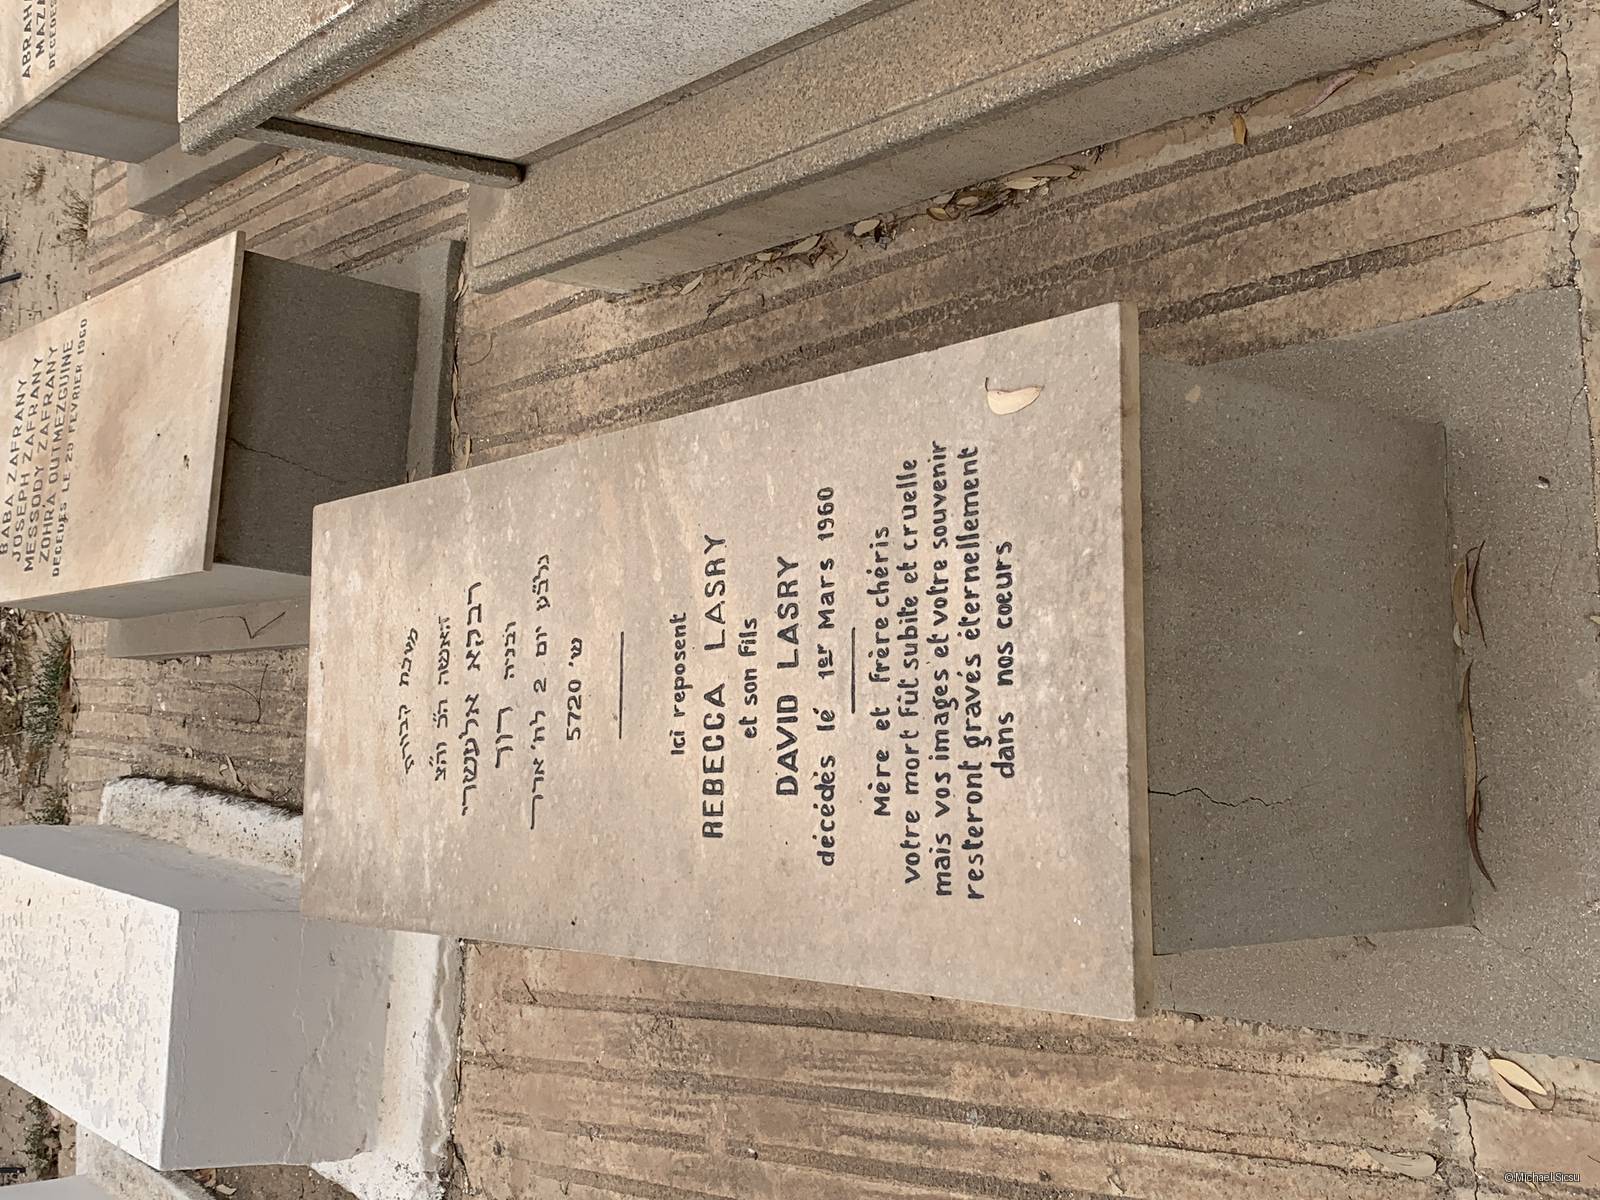 ABRAH
MAZA
DECEDES
BABA ZAFRANY
JOSEPH ZAFRANY
MESSODY ZAFRANY
ZOHRA OUTMEZGUINE
DECEDES LE 29 FEVRIER 1960
מצבת קבורת
האשה הכ׳ והצ׳
רבקא אלעשרי
ובניה דוד
נלב״ע יום 2 לח׳ אדר
ש׳ 5720
Ici reposent
REBECCA LASRY
et son fils
DAVID LASRY
décédés lé 1er Mars 1960
Mère et frère chéris
votre mort fût subite et cruelle
mais vos images et votre souvenir
resteront gravés éternellement
dans nos coeurs
©Michael Sicsu